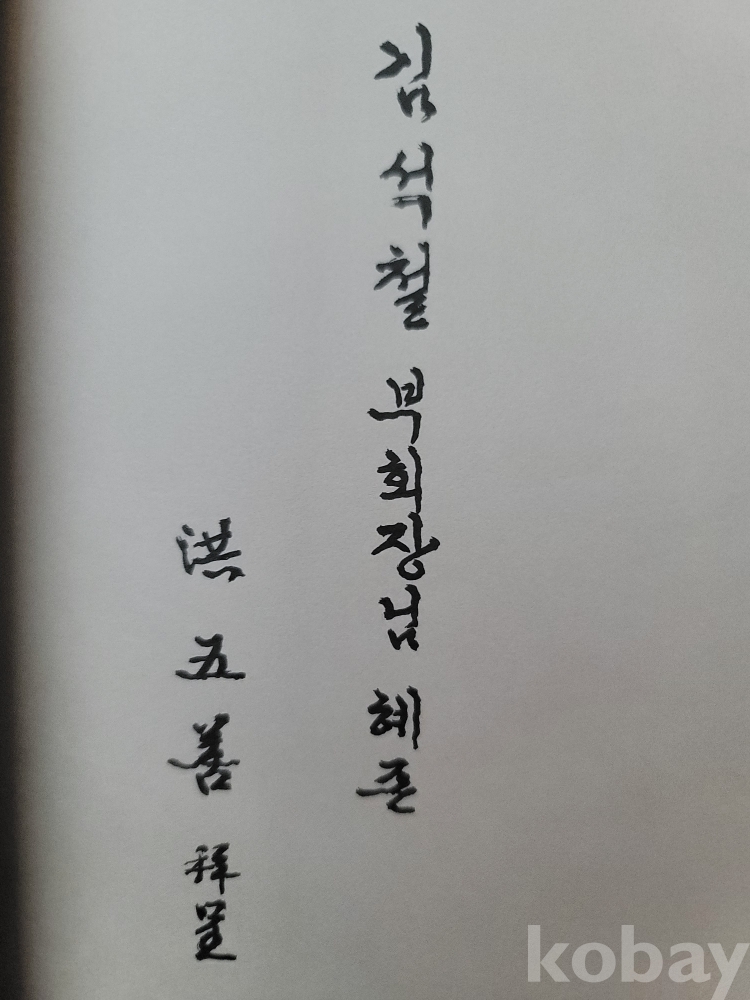 김석철 부회장님 혜존
洪五善 拜呈
kobay